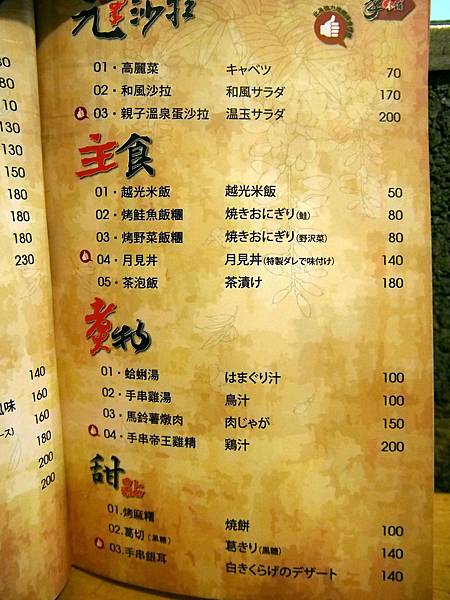 沙拉
01・高麗菜 キャベツ 70
02・和風沙拉 和風サラダ 170
03・親子溫泉蛋沙拉 温玉サラダ 200
主食
01・越光米飯 越光米飯 50
02・烤鮭魚飯糰 焼きおにぎり(鮭) 80
03・烤野菜飯糰 焼きおにぎり(野沢菜) 80
04・月見丼 月見丼(特製ダレで味付け) 140
05・茶泡飯 茶漬け 180
煮物
01・蛤蜊湯 はまぐり汁 100
02・手串雞湯 鳥汁 100
03・馬鈴薯燉肉 肉じゃが 150
04・手串帝王雞精 鶏汁 200
甜點
01.烤麻糬 焼餅 100
02.葛切(黑糖) 葛きり(黒糖) 140
03.手串銀耳 白きくらげのデザート 140
80
80
110
130
130
150
180
180
180
230
140
160
風味 160
ース) 180
200
200